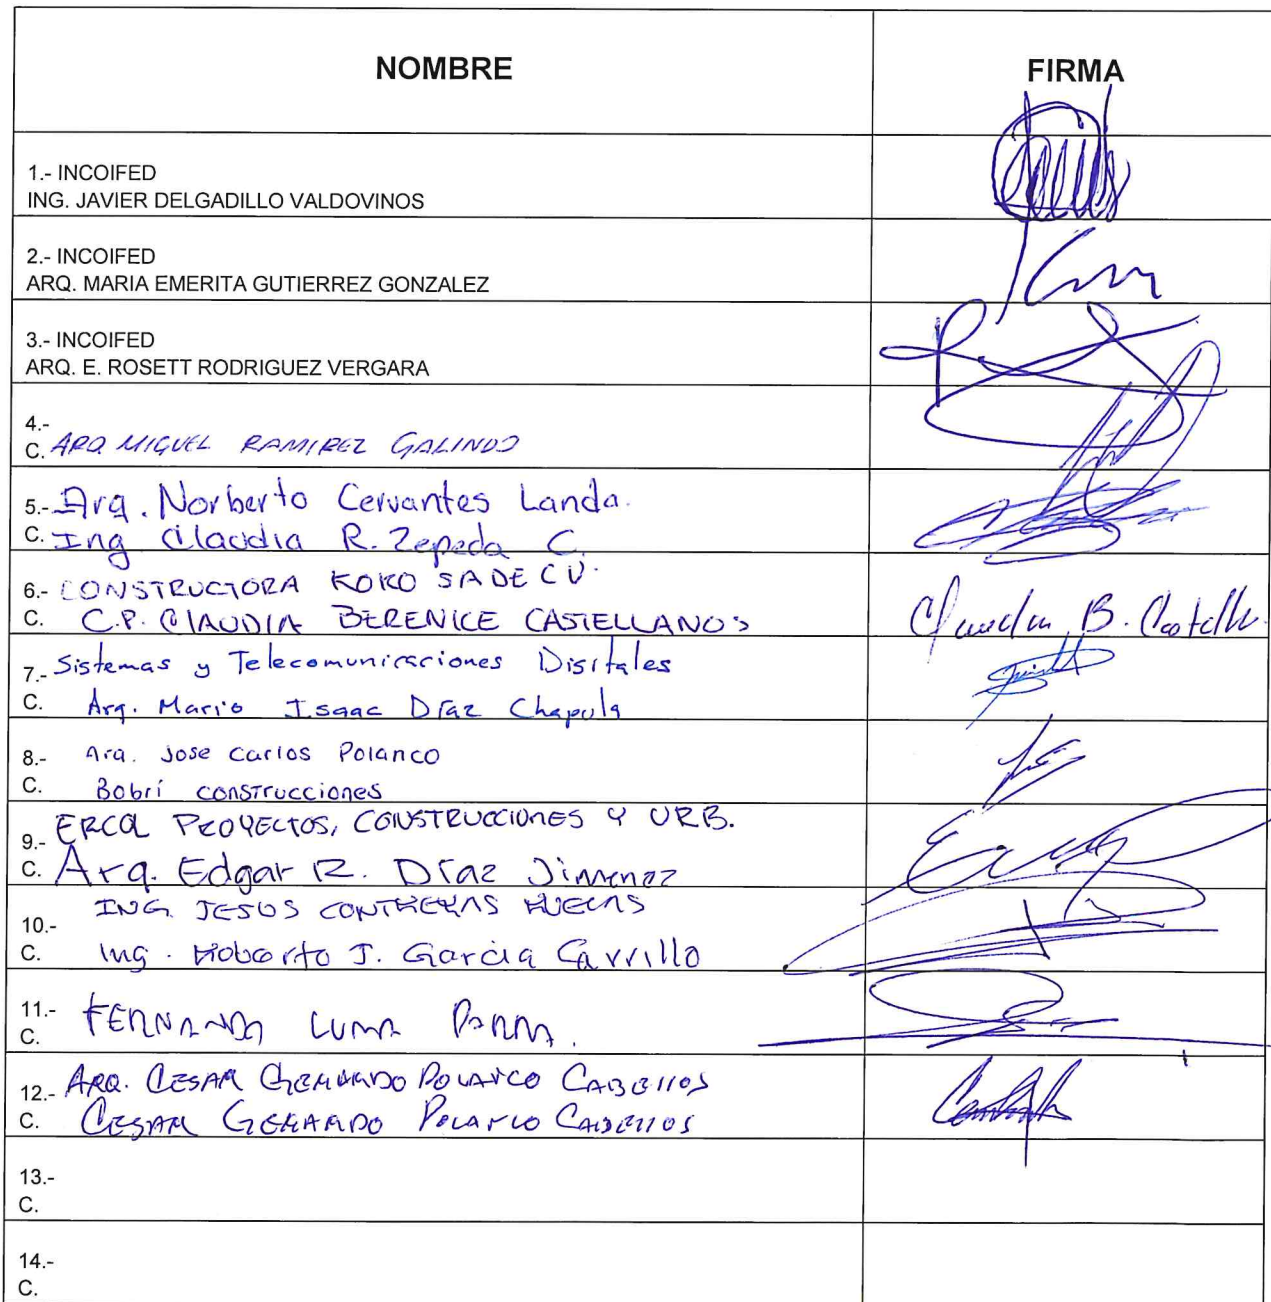 NOMBRE
FIRMA
1.- INCOIFED
ING. JAVIER DELGADILLO VALDOVINOS
2.- INCOIFED
ARQ. MARIA EMERITA GUTIERREZ GONZALEZ
3.- INCOIFED
ARQ. E. ROSETT RODRIGUEZ VERGARA
4.-
C. ARQ MIGUEL RAMIREZ GALINDO
5.- Arq. Norberto Cervantes Landa.
C. Ing Claudia R. Zepeda C.
6.- CONSTRUCTORA KOKO SA DE CV.
C. C.P. CLAUDIA BERENICE CASTELLANOS
Claudia B. Castell
7.- Sistemas y Telecomunicaciones Digitales
C. Arq. Mario Isaac Díaz Chapula
8.- Arq. Jose Carlos Polanco
C. Bobrí construcciones
9.- ERCOL PROYECTOS, CONSTRUCCIONES Y URB.
C. Arq. Edgar R. Díaz Jimenez
ING. JESUS CONTRERAS
10.-
C. Ing. Roberto J. Garcia Carrillo
11.- FERNANDO LUNA PARRA.
C.
12.- ARQ. CESAR GERARDO POLANCO CABELLOS
C. CESAR GERARDO POLANCO CABELLOS
13.-
C.
14.-
C.